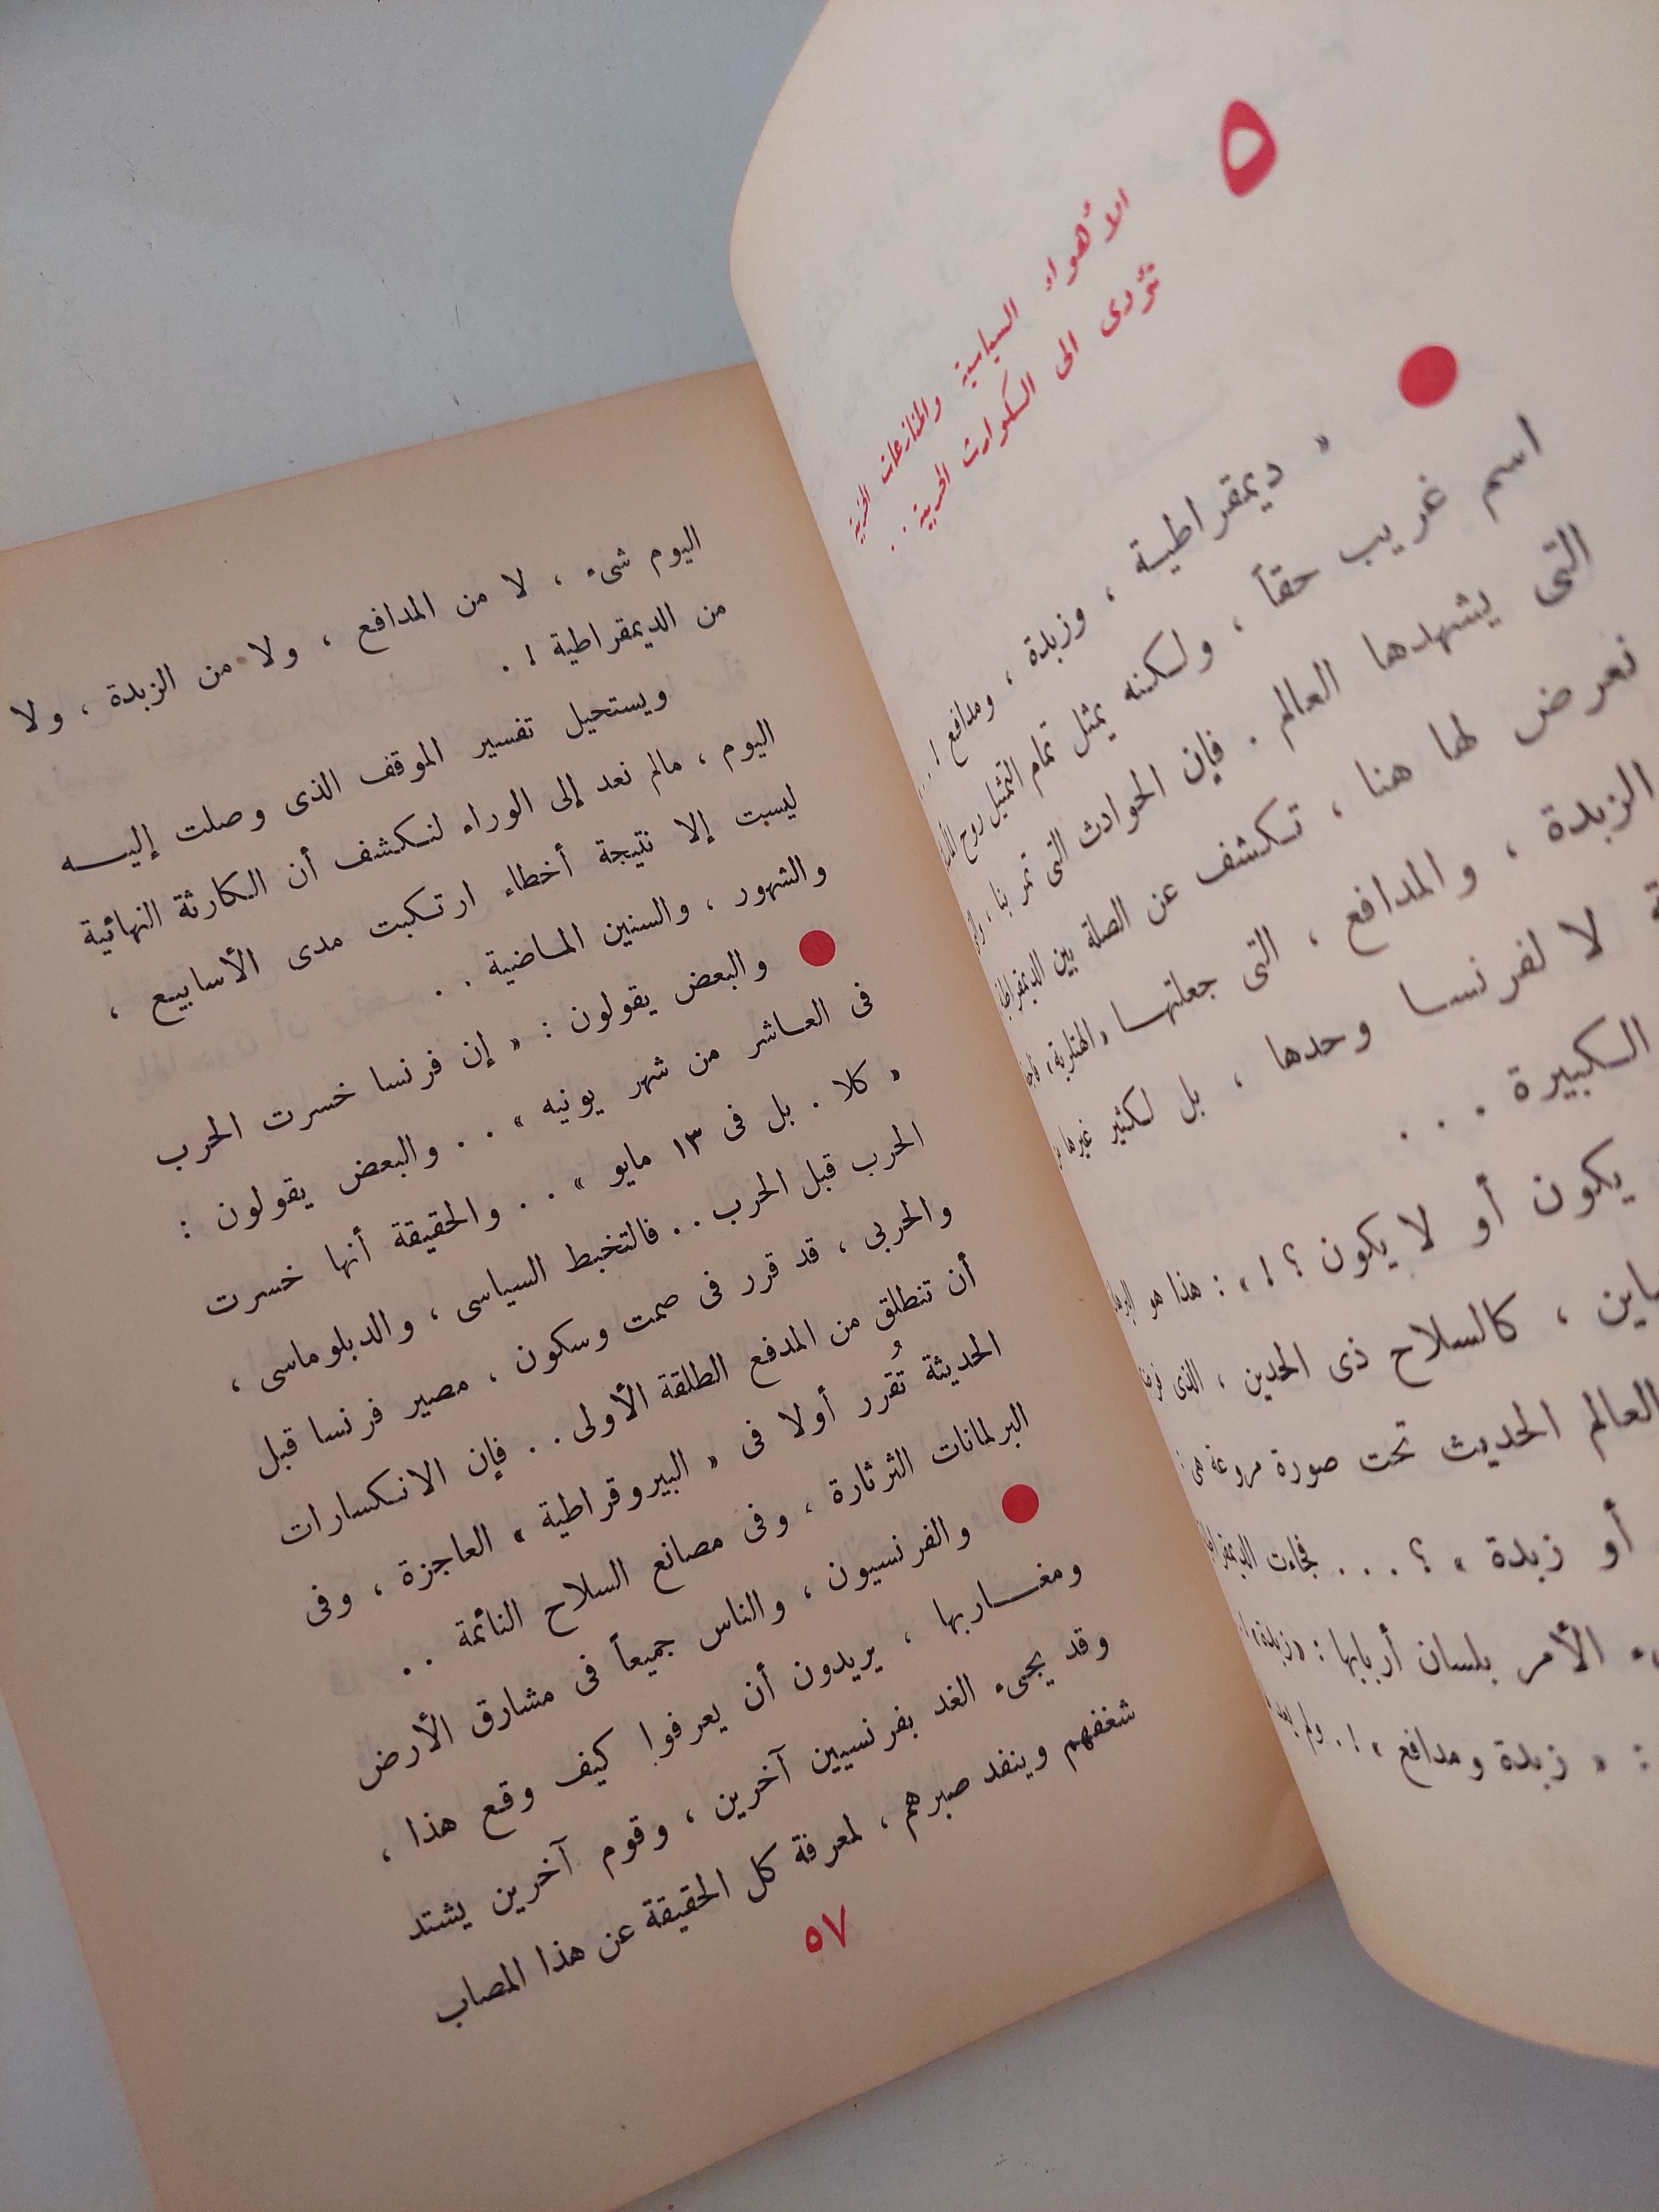 ٥
الأهواء السياسية والمنازعات الحزبية
تؤدى الى الكوارث الحربية . .
« ديمقراطية ، وزبدة ، ومدافع ! . . .
اسم غريب حقاً ، ولكنه يمثل تمام التمثيل روح
التى يشهدها العالم . فإن الحوادث التى تمر بنا ،
نعرض لها هنا ، تكشف عن الصلة بين
الزبدة ، والمدافع ، التى جعلتها « الهتلرية »
لا لفرنسا وحدها ، بل لكثير غيرها
الكبيرة . . .
يكون أو لا يكون ؟ ! » : هذا هو
كالسلاح ذى الحدين ، الذى
العالم الحديث تحت صورة مروعة هى :
أو زبدة » ؟ . . . فجاءت
الأمر بلسان أربابها : « زبدة » !
: « زبدة ومدافع » ! . ولم
اليوم شىء ، لا من المدافع ، ولا من الزبدة ، ولا
من الديمقراطية ! .
ويستحيل تفسير الموقف الذى وصلت إليه
اليوم ، مالم نعد إلى الوراء لنكشف أن الكارثة النهائية
ليست إلا نتيجة أخطاء ارتكبت مدى الأسابيع ،
والشهور ، والسنين الماضية . .
والبعض يقولون : « إن فرنسا خسرت الحرب
فى العاشر من شهر يونيه » . . والبعض يقولون :
« كلا . بل فى ١٣ مايو » . . والحقيقة أنها خسرت
الحرب قبل الحرب . . فالتخبط السياسى ، والدبلوماسى ،
والحربى ، قد قرر فى صمت وسكون ، مصير فرنسا قبل
أن تنطلق من المدفع الطلقة الأولى . . فإن الانكسارات
الحديثة تُقرر أولا فى « البيروقراطية » العاجزة ، وفى
البرلمانات الثرثارة ، وفى مصانع السلاح النائمة . .
والفرنسيون ، والناس جميعاً فى مشارق الأرض
ومغاربها ، يريدون أن يعرفوا كيف وقع هذا ،
وقد يجىء الغد بفرنسيين آخرين ، وقوم آخرين يشتد
شغفهم وينفد صبرهم ، لمعرفة كل الحقيقة عن هذا المصاب
٥٧